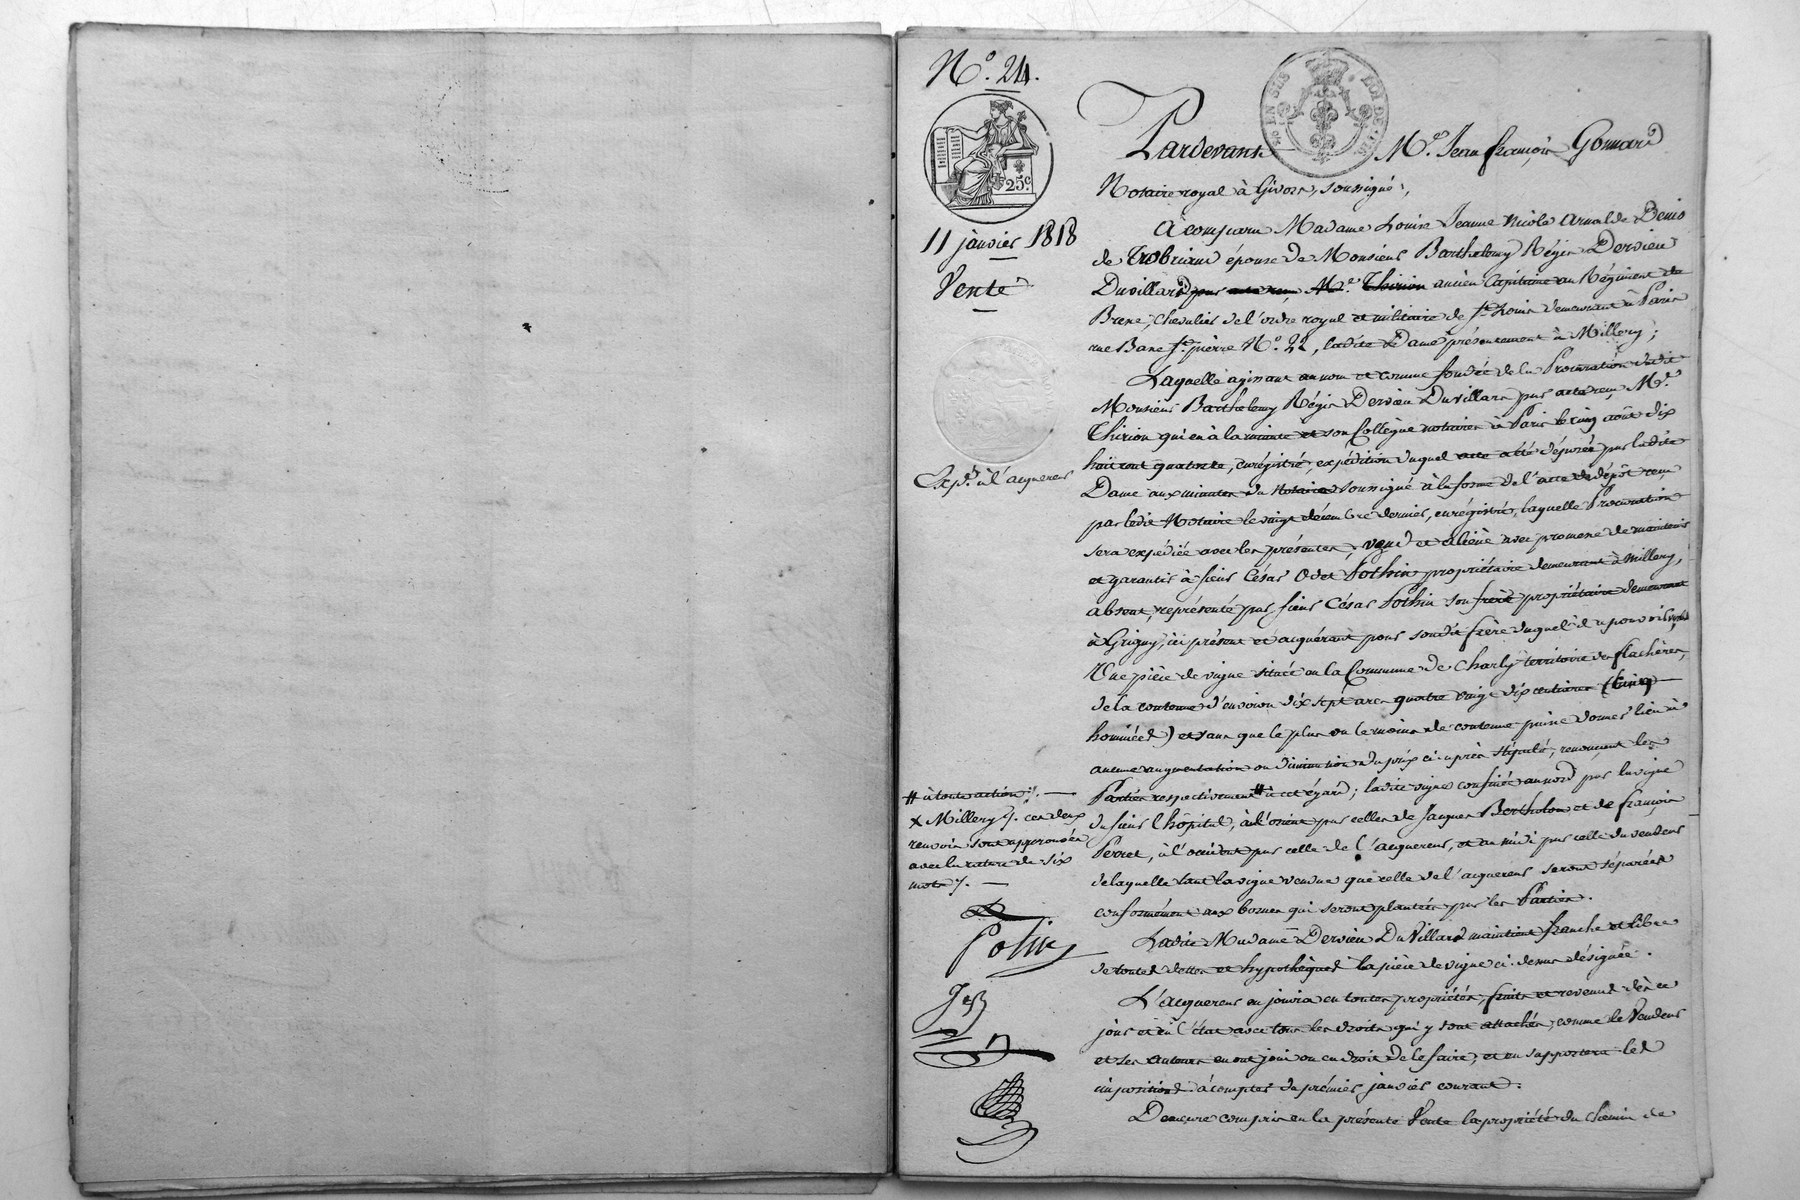 N.° 24.
25 c
11 janvier 1818
Vente
Exp.on à l'acquereur
# à toute action ./. —
x Millery ./. ces deux
renvois sont approuvés
avec la rature de six
mots ./. —
Pardevant M.e Jean françois Gonnard
Notaire royal à Givors, soussigné,
A comparu Madame Louise Jeanne Nicole Arnalde Denis
de Trobriand épouse de Monsieur Barthelemy Régis Dervieu
Duvillard pour M.e Thirion ancien Capitaine au Régiment de
Bresse, Chevalier de l'ordre royal et militaire de St. Louis demeurant à Paris
rue Basse St. pierre N.° 22, ladite Dame présentement à Millery ;
Laquelle agissant au nom et comme fondée de la Procuration dudit
Monsieur Barthelemy Régis Dervieu Duvillard par acte reçu M.e
Thirion qui en à la minute et son Collègue notaires à Paris le cinq août dix
huit cent quatorze, enrégistré, expédition duquel acte a été déposée par ladite
Dame aux minutes du Notaire soussigné à la forme de l'acte de dépôt reçu
par ledit Notaire le vingt décembre dernier, enrégistré, laquelle Procuration
sera expédiée avec les présentes, vend et aliène avec promesse de maintenir
et garantir à sieur César Odet Pothin propriétaire demeurant à Millery,
absent, représenté par sieur César Pothin son frère propriétaire demeurant
à Grigny, ici présent et acquérant pour sondit frère duquel il a pouvoir verbal
Une pièce de vigne située en la Commune de Charly territoire des flachères,
de la contenue d'environ dix sept ares quatre vingt dix centiares (cinq
hommées) et sans que le plus ou le moins de contenue puisse donner lieu à
aucune augmentation ou diminution du prix ci-après stipulé, renonçant les
Parties respectivement # à cet égard ; ladite vigne confinée au nord par la vigne
du sieur L'hôpital, à l'orient par celles de Jacques Bertholon et de françois
Perret, à l'occident par celle de l'acquereur, et au midi par celle du vendeur
de laquelle tant la vigne vendue que celle de l'acquereur seront séparées
conformément aux bornes qui seront plantées par les Parties.
Ladite Madame Dervieu Du Villard maintient franche et libre
de toutes dettes et hypothèques la pièce de vigne ci-dessus désignée.
L'acquereur en jouira en toutes propriétés, fruits et revenus dès ce
jour et en l'état avec tous les droits qui y sont attachés, comme le Vendeur
et ses auteurs en ont joui ou eu droit de le faire, et en supportera les
impositions à compter du prémier janvier courant.
Demeure compris en la présente Vente la propriété du Chemin de